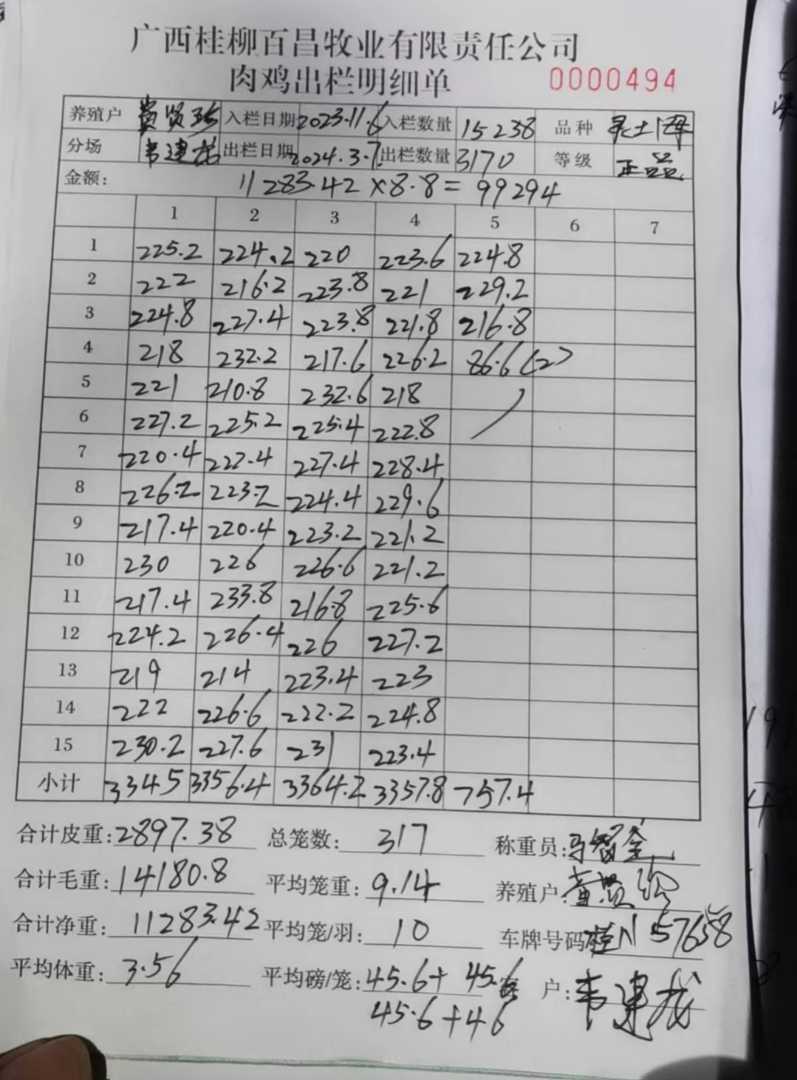 广西桂柳百昌牧业有限责任公司
肉鸡出栏明细单 0000494
养殖户 入栏日期 2023.11.6 入栏数量 15238 品种
分场 韦建龙 出栏日期 2024.3.7 出栏数量 3170 等级 正品
金额: 11283.42×8.8=99294
1 2 3 4 5 6 7
1 225.2 224.2 220 223.6 224.8
2 222 216.2 223.8 221 229.2
3 224.8 227.4 223.8 221.8 216.8
4 218 232.2 217.6 226.2 86.6(2)
5 221 210.8 232.6 218
6 227.2 225.2 225.4 222.8
7 220.4 222.4 227.4 228.4
8 226.2 223.2 224.4 229.6
9 217.4 220.4 223.2 221.2
10 230 226 226.6 221.2
11 217.4 233.8 216.8 225.6
12 224.2 226.4 226 227.2
13 219 214 223.4 223
14 222 226.6 222.2 224.8
15 230.2 227.6 231 223.4
小计 3345 3356.4 3364.2 3357.8 757.4
合计皮重: 2897.38 总笼数: 317 称重员:
合计毛重: 14180.8 平均笼重: 9.14 养殖户:
合计净重: 11283.42 平均笼/羽: 10 车牌号码: 桂N57658
平均体重: 3.56 平均磅/笼: 45.6+45.6 客户: 韦建龙
45.6+46